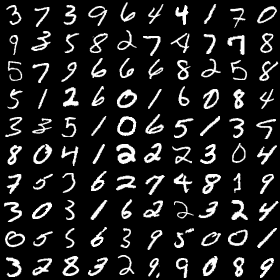 3 7 3 9 6 4 4 1 7 0
9 3 5 8 2 7 4 7 7 8
5 7 9 6 6 6 8 2 5 8
5 1 2 6 0 1 6 0 8 4
3 3 5 1 0 6 5 1 3 9
8 0 4 1 2 2 2 3 0 4
7 5 3 6 2 7 4 8 1 9
3 0 3 1 6 2 2 3 2 4
0 5 5 6 3 9 5 0 0 1
3 2 8 3 2 9 9 0 8 9